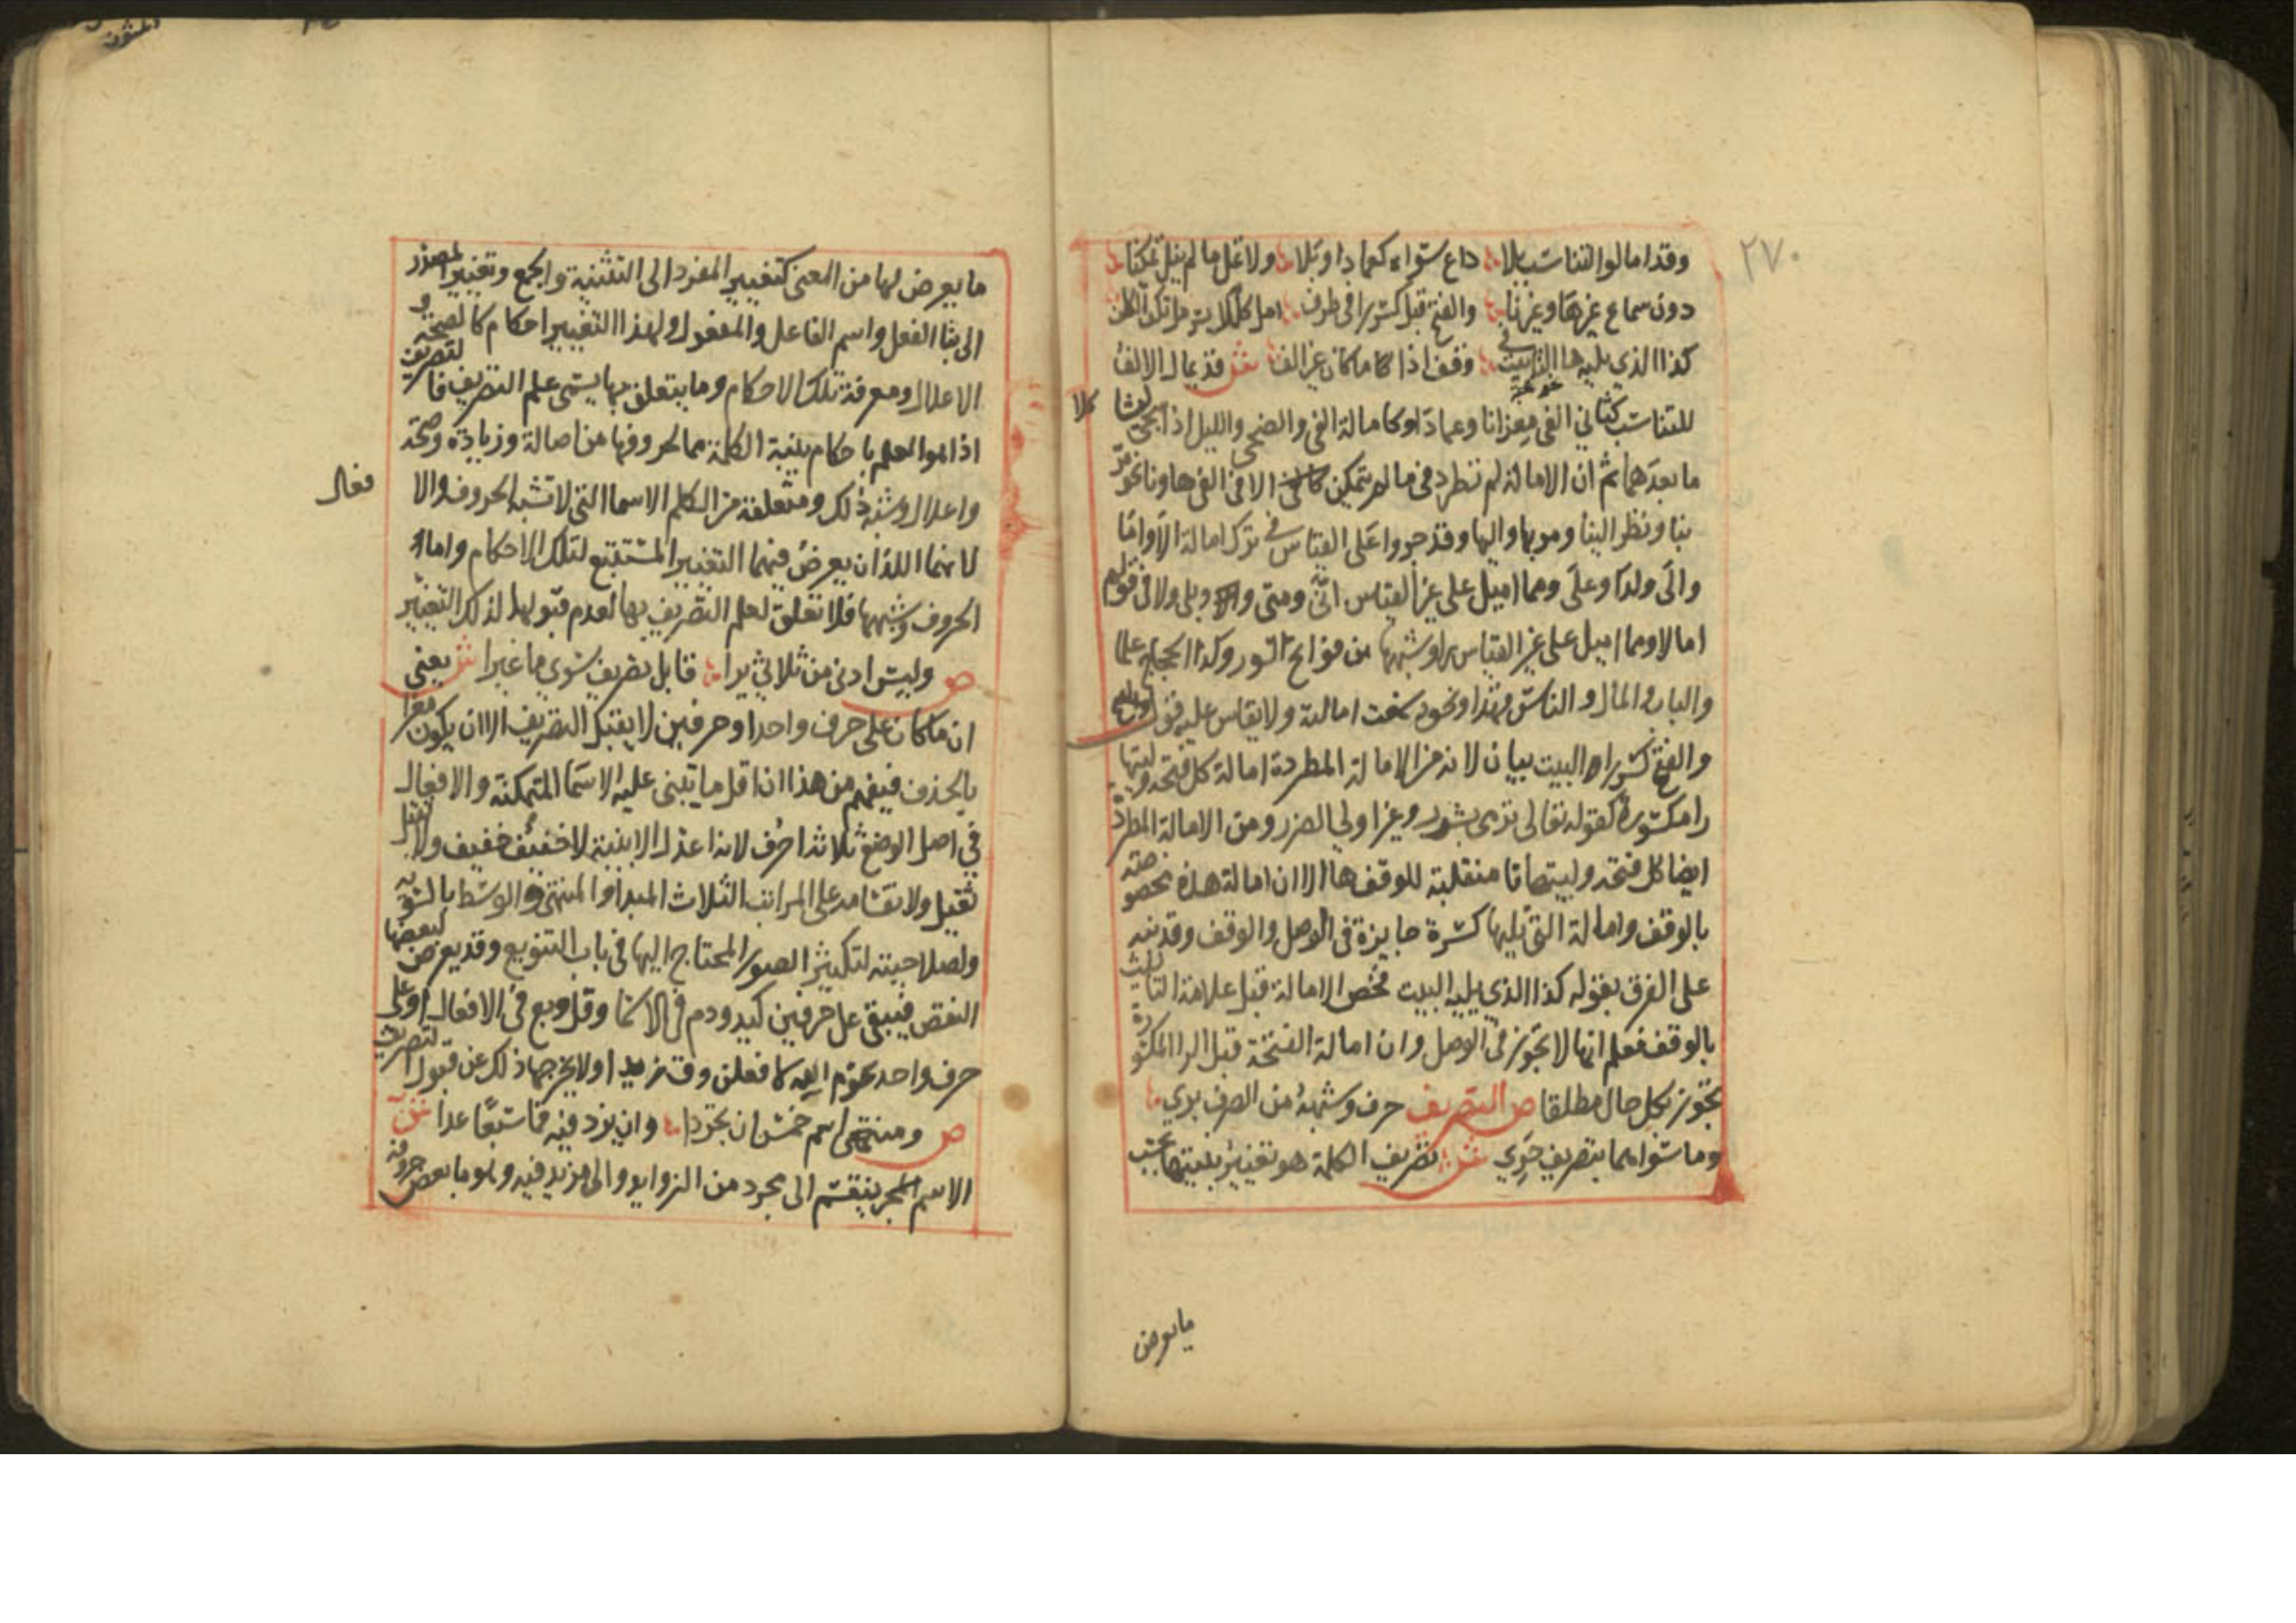 ٢٧٠
وقد امالوا لتناسب بلا داع سواه كعمادا وتلا ولا تمل ما لم ينل تمكنا
دون سماع غيرها وغير نا والفتح قبل كسر را في طرف امل كللايسر مل تكف الكلف
كذا الذي يليه ها التانيث في وقف اذا ما كان غير الف ش قد يمال الالف
للتناسب كثاني الفي معزانا وعمادا وكامالة الفي والضحى والليل اذا سجى
كلا
ما بعدهما ثم ان الامالة لم تطرد في ما لم يتمكن الا في الفي ها ونا نحو مر
بنا ونظر الينا ومر بها واليها وقد جروا على القياس في ترك امالة الا واما
والى ولدا وعلى ومما اميل على غير القياس انى ومتى وبلى ولا في قولهم
امالا ومما اميل على غير القياس را وشبهها من فواتح السور وكذا الحجاج علما
والباب والمال والناس فهذا ونحوه سمعت امالته ولا يقاس عليه قوله
والفتح قبل كسر را البيت بيان لانه من الامالة المطردة امالة كل فتحة وليتها
را مكسورة كقوله تعالى ترمى بشرر وغير اولي الضرر ومن الامالة المطردة
ايضا كل فتحة وليتها تا منقلبة للوقف ها الا ان امالة هذه مخصوصة
بالوقف وامالة التي يليها كسرة جايزة في الوصل والوقف وقد نبه
على الفرق بقوله كذا الذي يليه البيت فخص الامالة قبل علامة التانيث
بالوقف فعلم انها لا تجوز في الوصل وان امالة الفتحة قبل الرا المكسورة
تجوز بكل حال مطلقا ص التصريف حرف وشبهه من الصرف بري
وما سواهما بتصريف حري ش تصريف الكلمة هو تغيير بنيتها بحسب
ما يعرض
ما يعرض لها من المعنى كتغيير المفرد الى التثنية والجمع وتغيير المصدر
الى بنا الفعل واسم الفاعل والمفعول ولهذا التغيير احكام كالصحة و
الاعلال ومعرفة تلك الاحكام وما يتعلق بها يسمى علم التصريف فالتصريف
اذا هو العلم باحكام بنية الكلمة مما لحروفها من اصالة وزيادة وصحة
واعلال وشبه ذلك ومتعلقة من الكلم الاسما التي لا تشبه الحروف والا
فعال
لانهما اللذان يعرض فيهما التغيير المستتبع لتلك الاحكام واما
الحروف وشبهها فلا تعلق لعلم التصريف بها لعدم قبولها لذلك التغيير
ص وليس ادنى من ثلاثي يرا قابل تصريف سوى ما غيرا ش يعني
ان ما كان على حرف واحد او حرفين لا يقبل التصريف الا ان يكون مغيرا
بالحذف فيفهم من هذا ان اقل ما تبنى عليه الاسما المتمكنة والافعال
في اصل الوضع ثلاثة احرف لانه اعدل الابنية لا خفيف خفيف ولا ثقيل
ثقيل ولانقسامه على المراتب الثلاث المبدا والمنتهى والوسط بالسوية
ولصلاحيته لتكثير الصور المحتاج اليها في باب التنويع وقد يعرض لبعضها
النقص فيبقى على حرفين كيد ودم في الاسما وقل وبع في الافعال او على
حرف واحد نحو م الله لافعلن وق زيدا ولا يخرجها ذلك عن قبول التصريف
ص ومنتهى اسم خمس ان تجردا وان يزد فيه فما سبعا عدا ش
الاسم ينقسم الى مجرد من الزوايد والى مزيد فيه وهو ما بعض حروفه